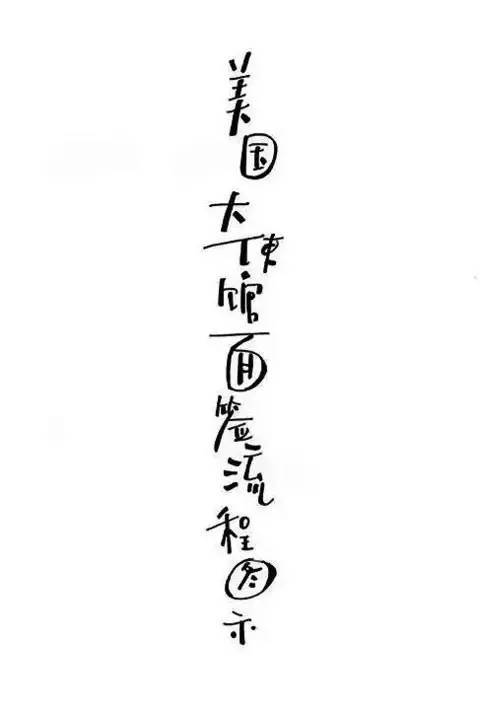 美国大使馆面签流程图示